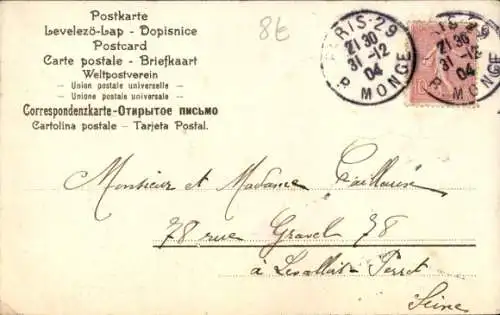 Postkarte
Levelező-Lap - Dopisnice
Postcard
Carte postale - Briefkaart
Weltpostverein
- Union postale universelle -
- Unione postale universale -
Correspondenzkarte-Открытое письмо
Cartolina postale - Tarjeta Postal.
8€
PARIS-29
21 30
31 -12
04
R. MONGE
IS-29
30
31 -12
04
R. MONGE
10
Monsieur et Madame
78 rue Gravel 78
à Levallois-Perret
Seine